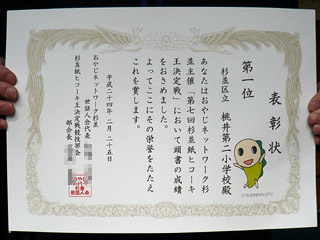 表彰状
第一位
杉並区立 桃井第二小学校殿
あなたはおやじネットワーク杉
並主催「第七回杉並紙ヒコーキ
王決定戦」において頭書の成績
をおさめました。
よってここにその栄誉をたたえ
これを賞します。
平成二十四年 二月 二十五日
おやじネットワーク杉並
世話人会代表
杉並紙ヒコーキ王決定戦競技部会
部会長